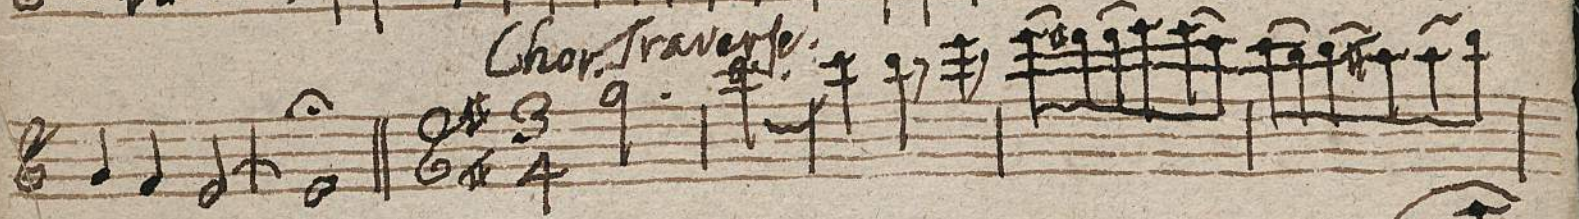 Chor. Traverse.
3
4